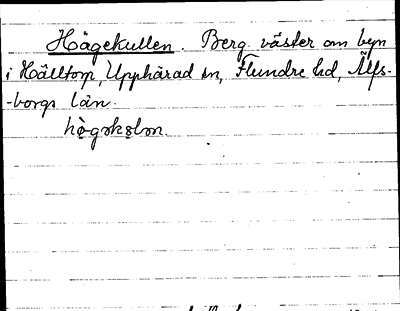 Högekullen. Berg väster om byn
i Hälltorp, Upphärad sn, Flundre hd, Älfs-
-borgs län.